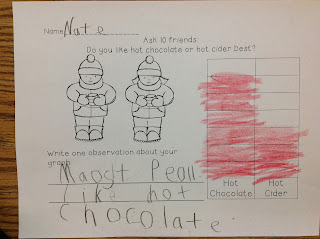 Name Nate
Ask 10 friends:
Do you like hot chocolate or hot cider best?
Write one observation about your
graph.
Maost Peoll
like hot
chocolate.
Hot Chocolate
Hot Cider